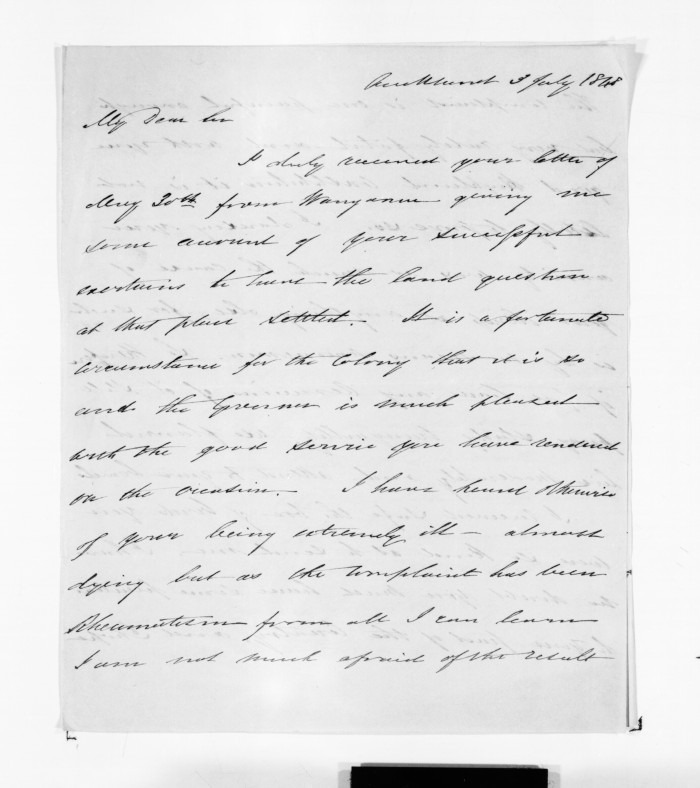 Auckland 3 July 1848
My Dear Sir
I duly received your letter of
May 30th from Wanganui giving me
some account of your successful
exertions to have the land question
at that place settled. It is a fortunate
circumstance for the Colony that it is so
and the Governor is much pleased
with the good service you have rendered
on the occasion. I have heard otherwise
of your being extremely ill – almost
dying but as the complaint has been
Rheumatism from all I can learn
I am not much afraid of the result